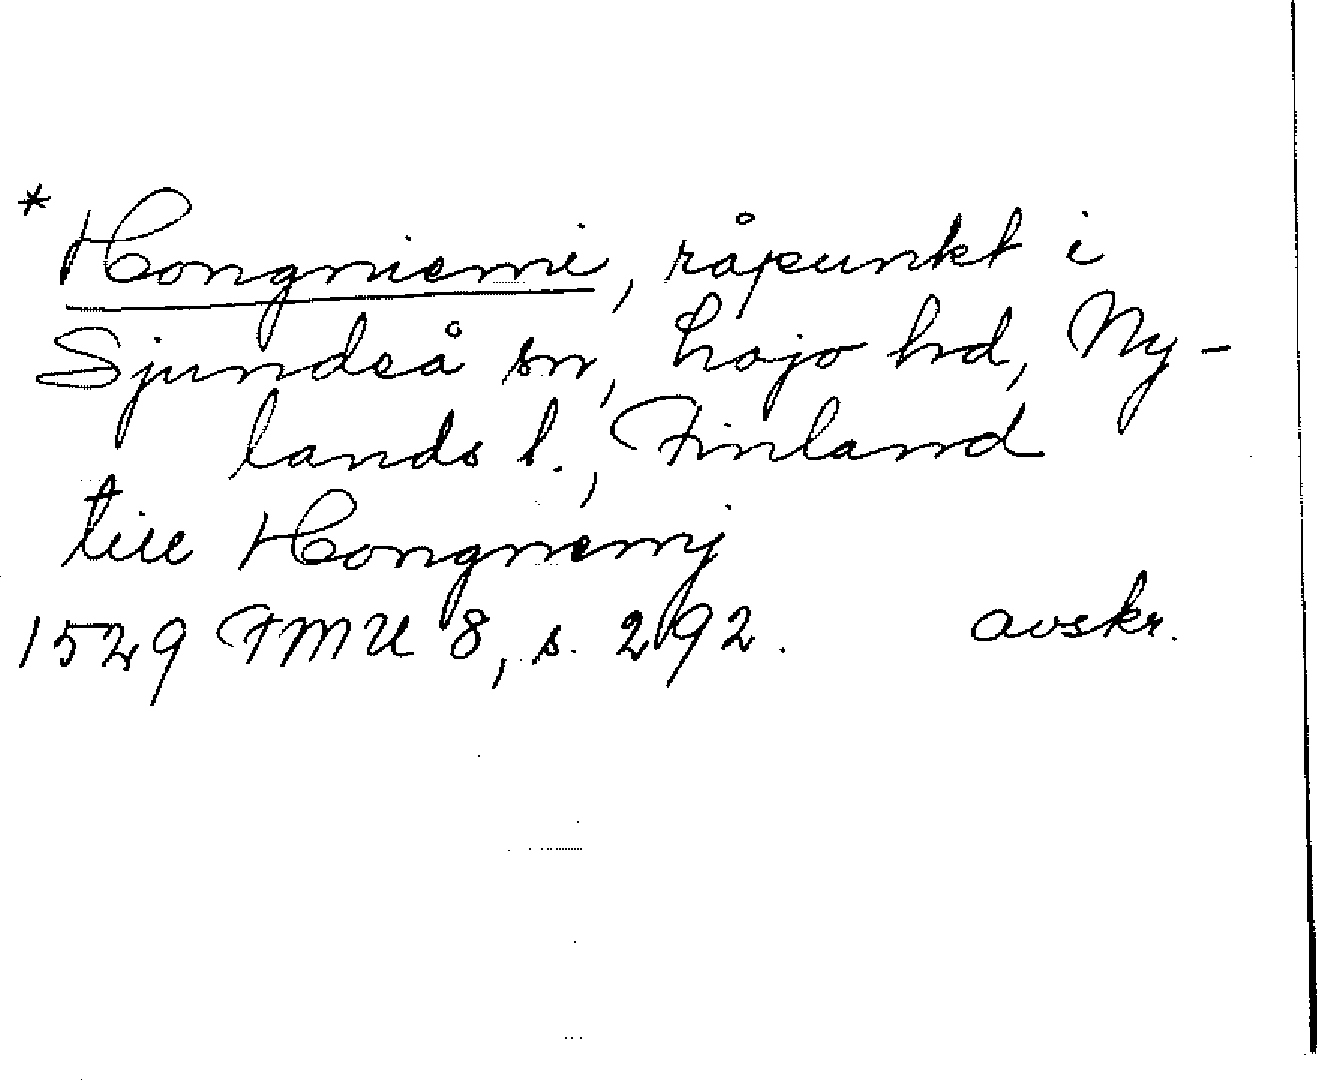 * Hongniemi, råpunkt i
Sjundeå sn, Lojo hd, Ny-
lands l., Finland
till Hongnemj
1529 FMU 8, s. 292. avskr.